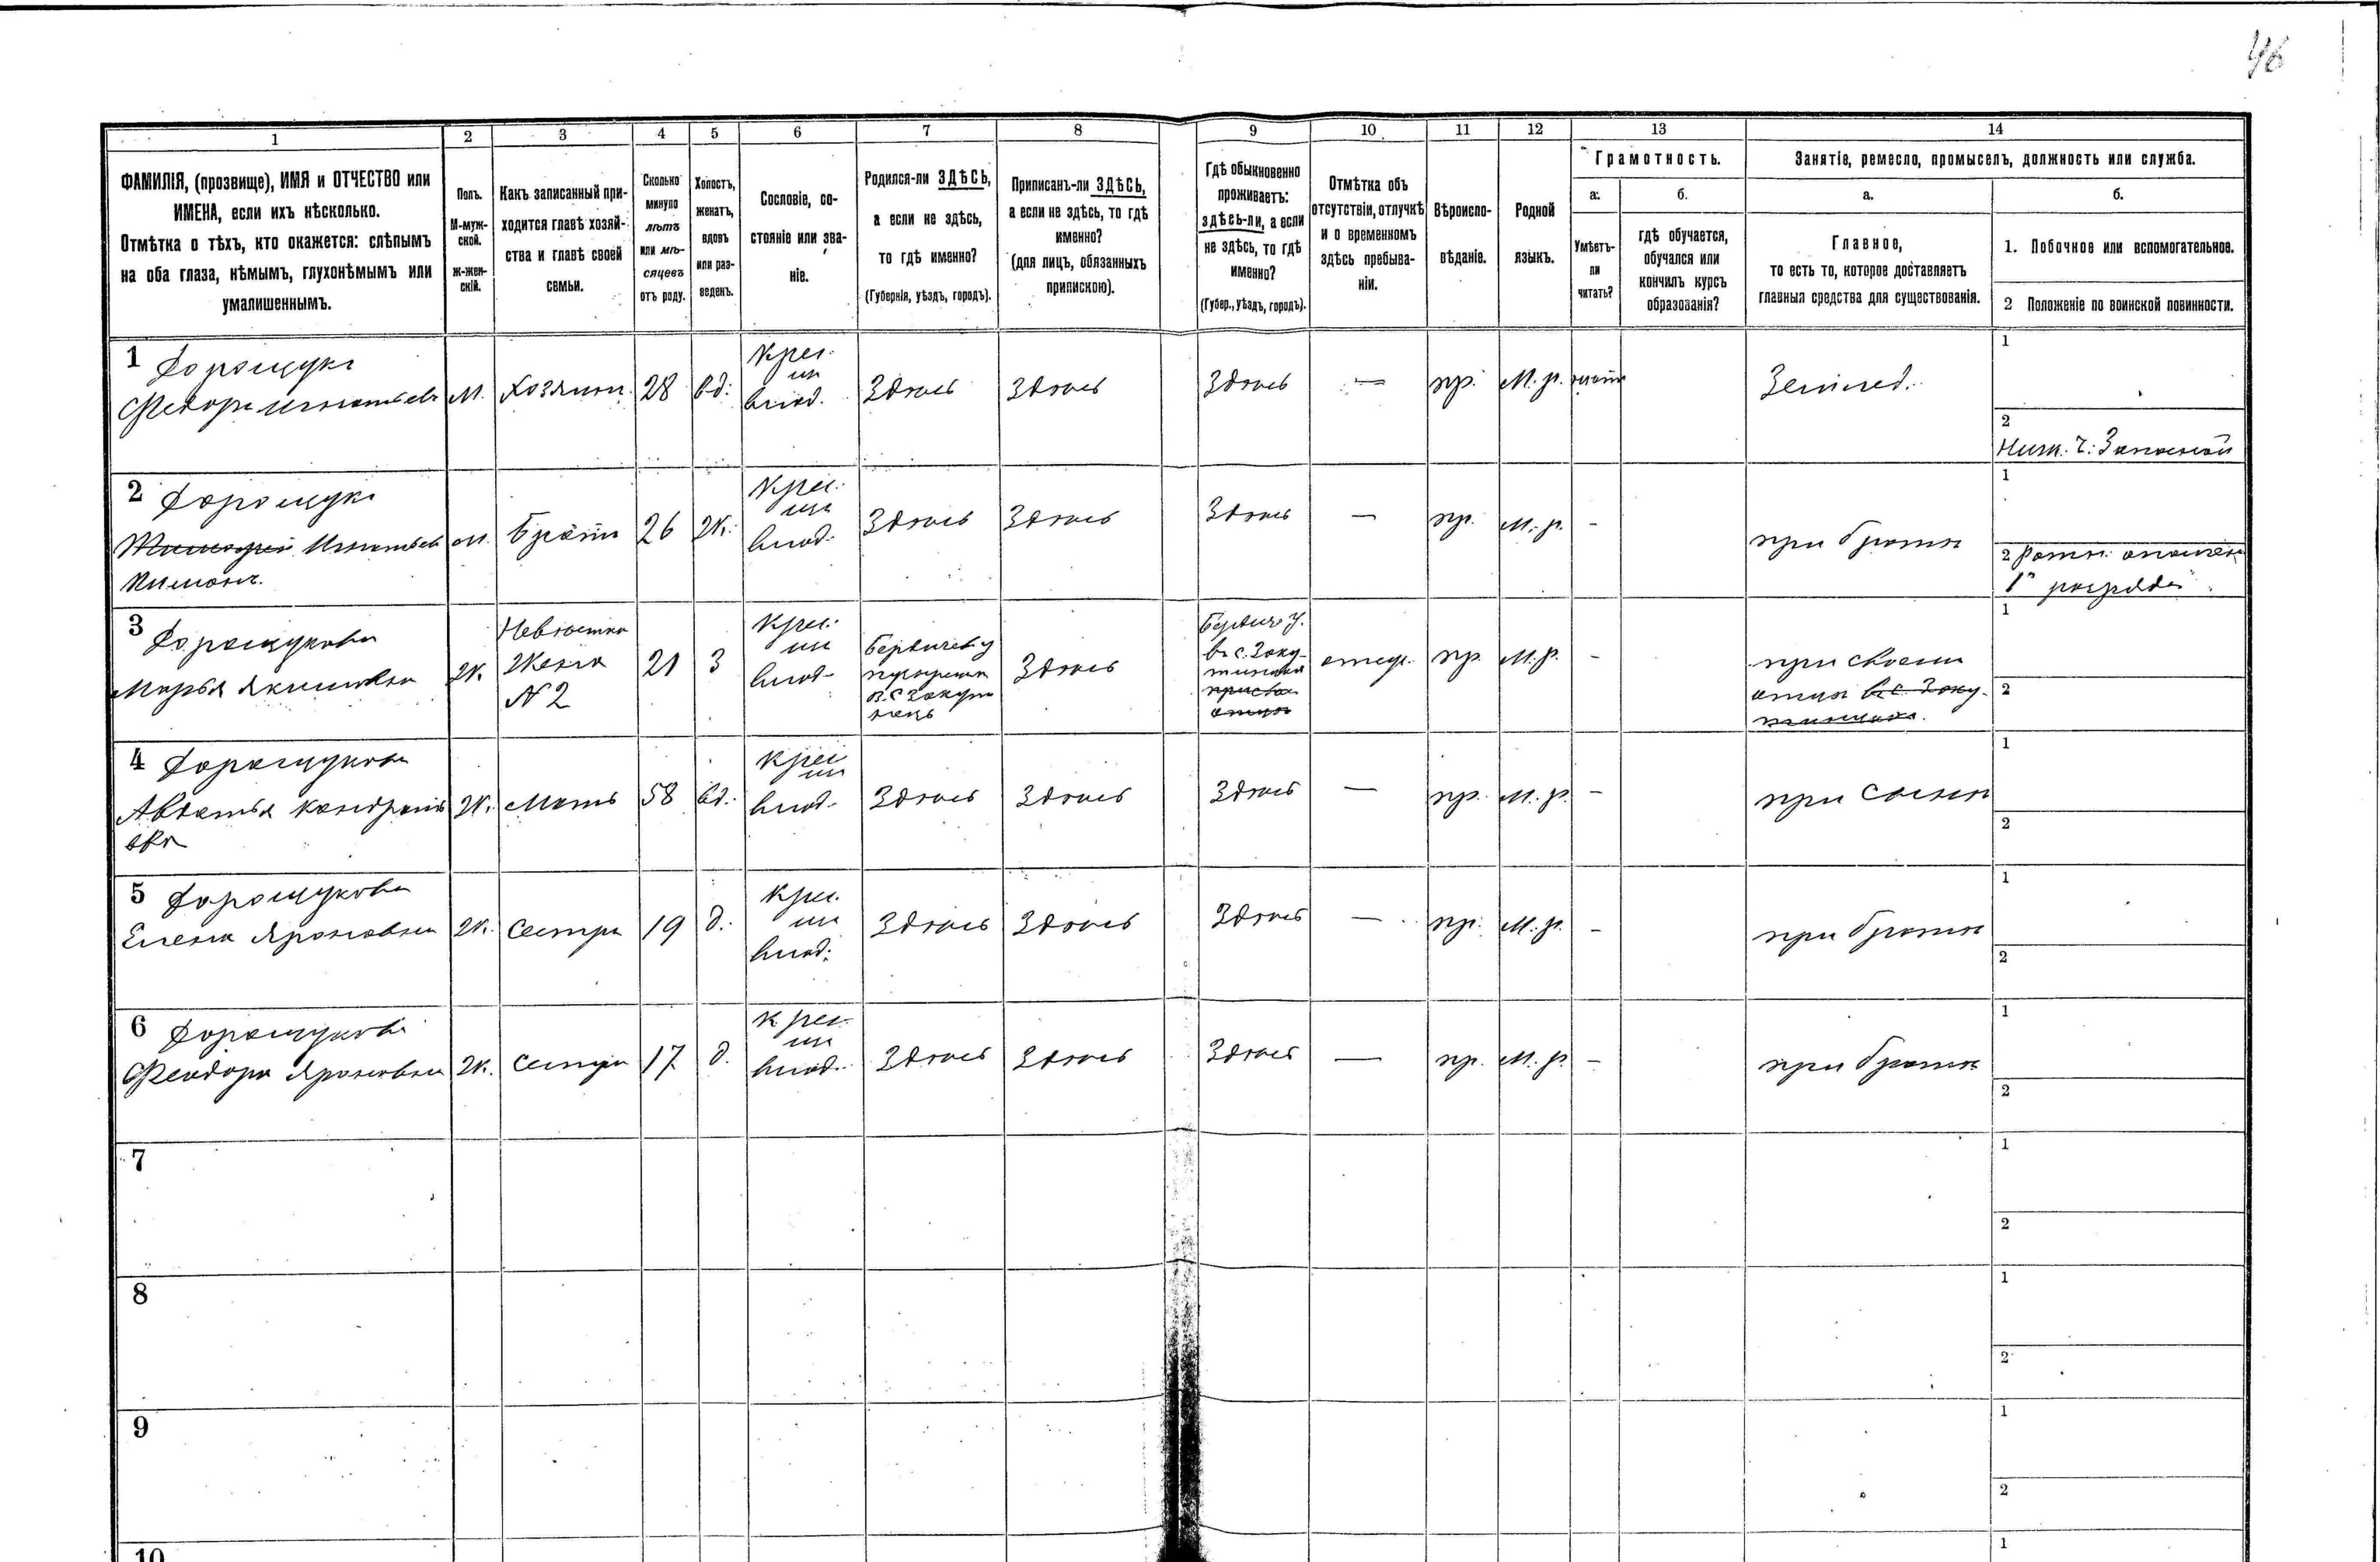 46
1
2
3
4
5
6
7
8
9
10
11
12
13
14
ФАМИЛІЯ, (прозвище), ИМЯ и ОТЧЕСТВО или
ИМЕНА, если ихъ нѣсколько.
Отмѣтка о тѣхъ, кто окажется: слѣпымъ
на оба глаза, нѣмымъ, глухонѣмымъ или
умалишеннымъ.
Полъ.
М-муж-
ской.
ж-жен-
скій.
Какъ записанный при-
ходится главѣ хозяй-
ства и главѣ своей
семьи.
Сколько
минуло
лѣтъ
или мѣ-
сяцевъ
отъ роду.
Холостъ,
женатъ,
вдовъ
или раз-
веденъ.
Сословіе, со-
стояніе или зва-
ніе.
Родился-ли ЗДѢСЬ,
а если не здѣсь,
то гдѣ именно?
(Губернія, уѣздъ, городъ).
Приписанъ-ли ЗДѢСЬ,
а если не здѣсь, то гдѣ
именно?
(для лицъ, обязанныхъ
припискою).
Гдѣ обыкновенно
проживаетъ:
здѣсь-ли, а если
не здѣсь, то гдѣ
именно?
(Губер., уѣздъ, городъ).
Отмѣтка объ
отсутствіи, отлучкѣ
и о временномъ
здѣсь пребыва-
ніи.
Вѣроиспо-
вѣданіе.
Родной
языкъ.
Грамотность.
а.
Умѣетъ-
ли
читать?
б.
гдѣ обучается,
обучался или
кончилъ курсъ
образованія?
Занятіе, ремесло, промыселъ, должность или служба.
а.
Главное,
то есть то, которое доставляетъ
главныя средства для существованія.
б.
1. Побочное или вспомогательное.
2 Положеніе по воинской повинности.
1 Дорощукъ
Федоръ
М.
Хозяинъ
28
вд.
Крес.
из
влад.
Здѣсь
Здѣсь
Здѣсь
—
пр.
М. р.
Землед.
1
2
Ниж. ч. Запасной
2 Дорощукъ
М.
Братъ
26
Ж.
Крес.
из
влад.
Здѣсь
Здѣсь
Здѣсь
—
пр.
М. р.
-
при братѣ
1
2 Ратн. ополчен
1го разряда
3 Дорощукова
Марья Якимовна
Ж.
Невѣстка
Жена
N 2
21
З
Крес.
из
влад.
Бердичев у
Здѣсь
Бердич у.
в с. Заку-
отсут.
пр.
М. р.
-
при своем
отцѣ в с. Заку-
1
2
4 Дорощукова
Авдотья Кондрать
евна
Ж.
Мать
58
вд.
Крес
из
влад.
Здѣсь
Здѣсь
Здѣсь
—
пр.
М. р.
-
при сынѣ
1
2
5 Дорощукова
Елена
Ж.
Сестра
19
д.
Крес.
из
влад.
Здѣсь
Здѣсь
Здѣсь
—
пр.
М. р.
-
при братѣ
1
2
6 Дорощукова
Феодора
Ж.
Сестра
17
д.
Крес.
из
влад.
Здѣсь
Здѣсь
Здѣсь
—
пр.
М. р.
-
при братѣ
1
2
7
1
2
8
1
2
9
1
2
10
1